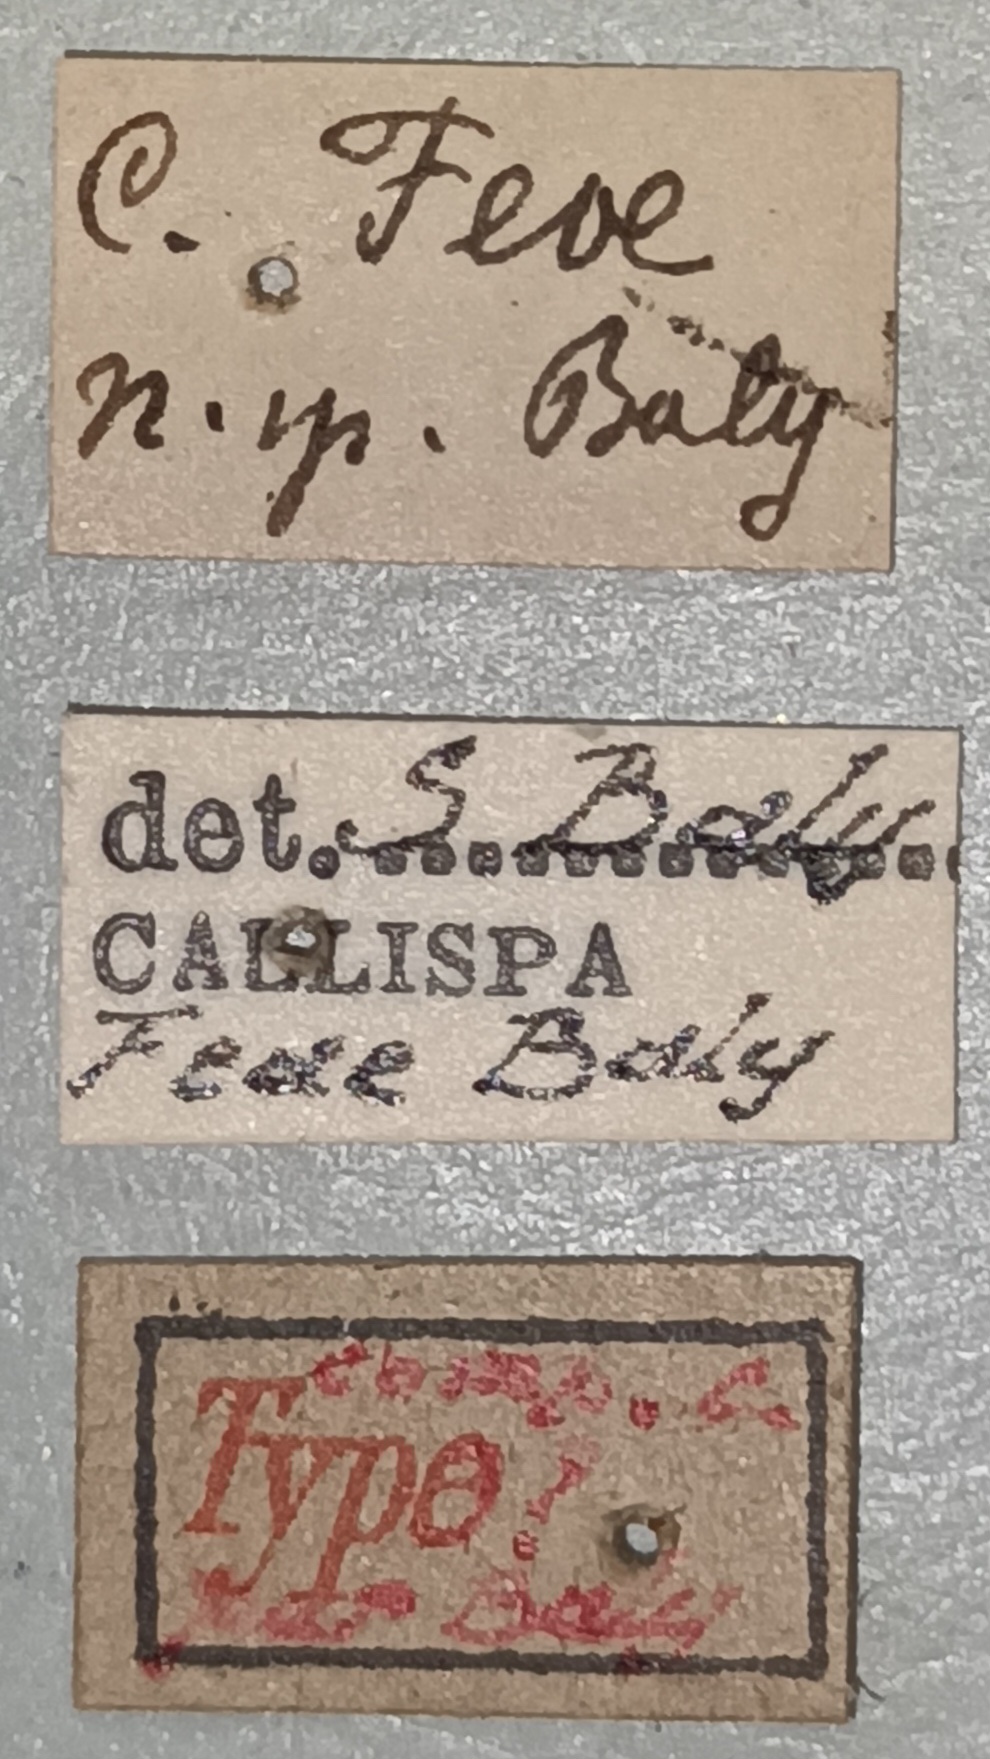 C. Feve
n. sp. Baly
det. S. Baly
CALLISPA
Feae Baly
Type!
Baly